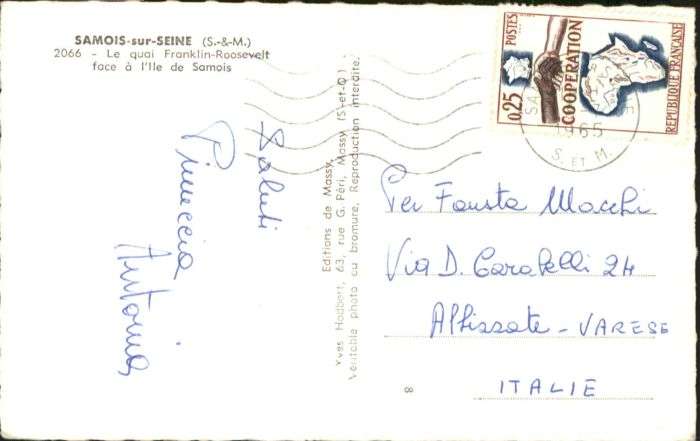 SAMOIS-sur-SEINE (S.-&-M.)
2066 - Le quai Franklin-Roosevelt
face à l'Ile de Samois
Saluti
Pinuccia
Antonia
Editions de Massy,
Yves Hadbart, 63, rue G. Péri, Massy (S-et-O)
Véritable photo au bromure, Reproduction interdite.
POSTES
0,25
COOPÉRATION
REPUBLIQUE FRANÇAISE
1965
S. ET M.
Per Fausta Macchi
Via D. Caratelli 24
Albizzate - VARESE
ITALIE
8